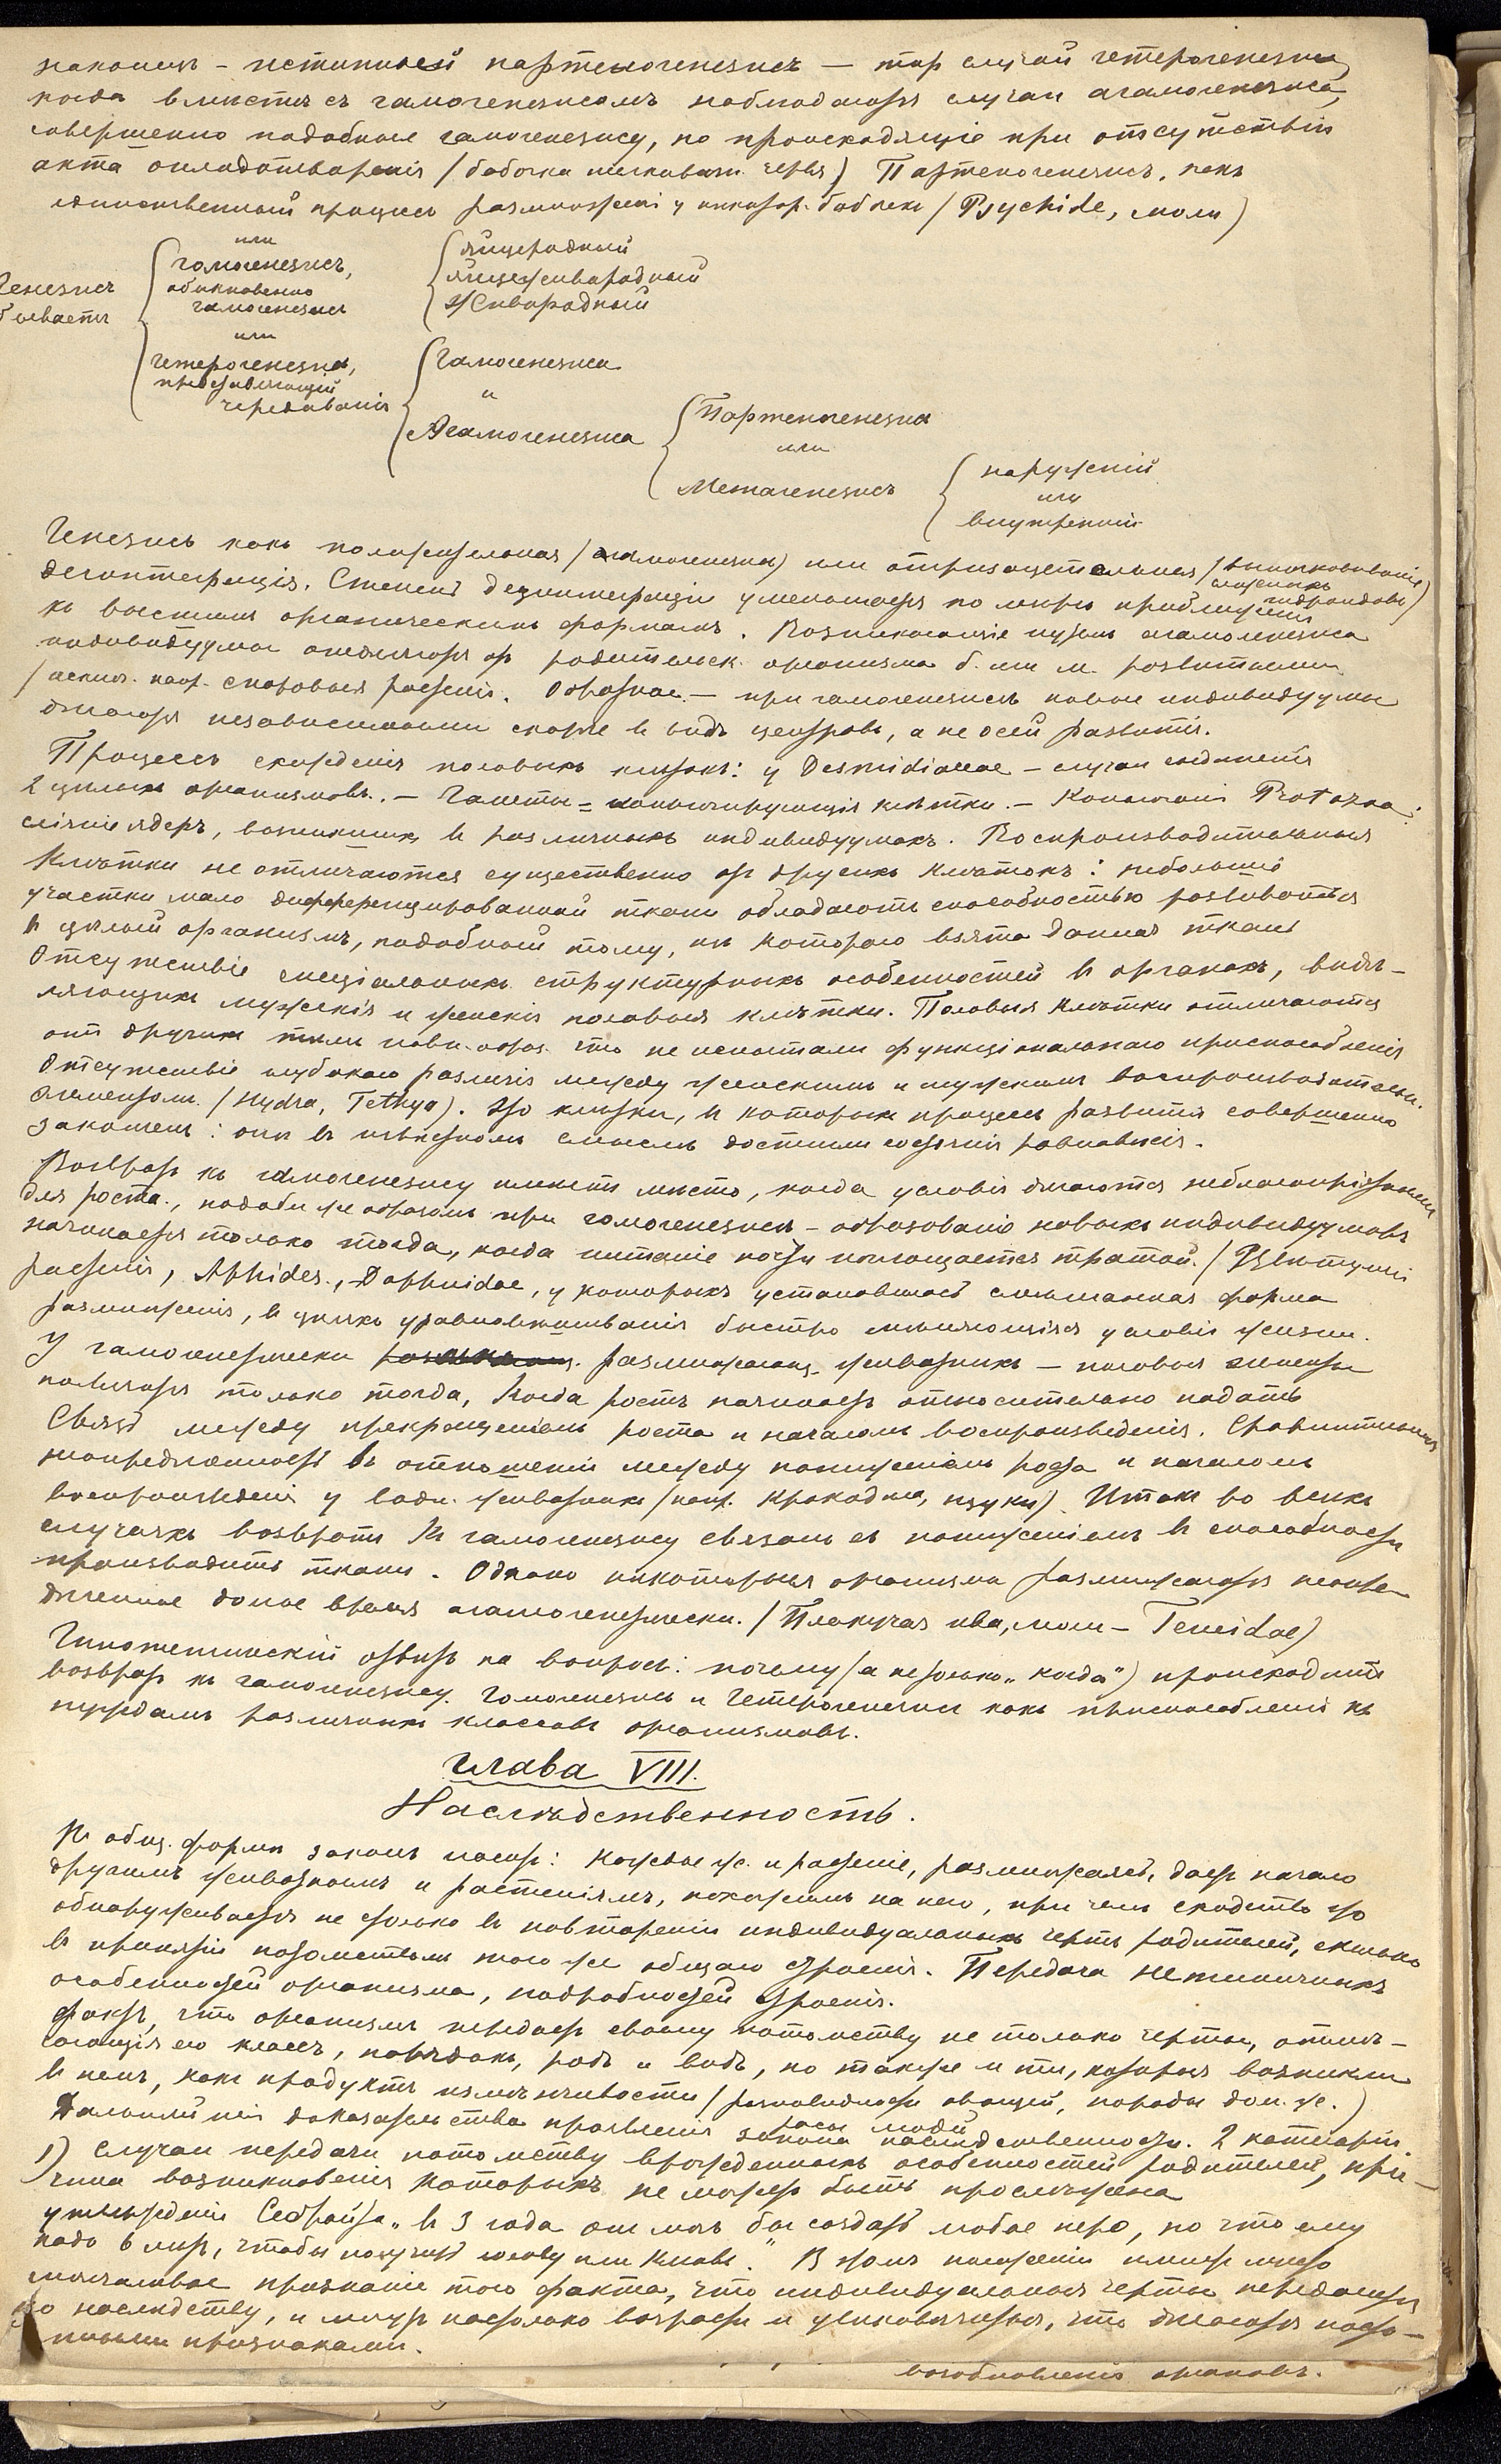 наконецъ – истинный партеногенезисъ — тотъ случай гетерогенезиса,
когда вместѣ съ гамогенезисомъ наблюдаются случаи агамогенезиса,
совершенно подобные гамогенезису, но происходящіе при отсутствіи
акта оплодотворенія (бабочка шелковичн. червя) Партеногенезисъ, какъ
единственный процессъ размноженія у некотор. бабочекъ (Psychide, моли)
Генезисъ бываетъ
или гомогенезисъ, обыкновенно гамогенезисъ
яйцеродный
яйцеживородный
живородный
или
гетерогенезисъ, представляющій чередованія
Гамогенезиса
и
Агамогенезиса
Партеногенезисъ
или
Метагенезисъ
наружный
или
внутренній
Генезисъ какъ положительная (агамогенезисъ) или отрицательная (
дезинтеграція. Степень дезинтеграціи уменьшается по мѣрѣ приближенія
къ высшимъ органическимъ формамъ. Возникающіе путемъ агамогенезиса
индивидуумы отделяются отъ родительск. организма б. или м. развитыми
(исключ. напр. споровыя растенія. Обратное – при гамогенезисѣ новые индивидуумы
дѣлаются независимыми скорѣе въ видѣ центровъ, а не осей развитія.
Процессъ скожденія половыхъ клѣтокъ: у Desmidiaceae – случаи соединенія
2 цѣлыхъ организмовъ. – Гаметы = конъюгирующія клѣтки. – Protozoa:
сліяніе ядеръ, возникшихъ въ различныхъ индивидуумахъ. Воспроизводительныя
клѣтки не отличаются существенно отъ другихъ клѣтокъ: небольшіе
участки мало дифференцированной ткани обладаютъ способностью развиваться
въ цѣлый организмъ, подобный тому, изъ котораго взята данная ткань
Отсутствіе спеціальныхъ структурныхъ особенностей въ органахъ, выдѣ-
ляющихъ мужскія и женскія половыя клѣтки. Половыя клѣтки отличаются
отъ другихъ тѣмъ что не испытали функціональнаго приспособленія
Отсутствіе глубокаго различія между женскимъ и мужскимъ воспроизводительн.
элементомъ. (Hydra, Tethya). Это клѣтки, въ которыхъ процессъ развитія совершенно
законченъ: они въ извѣстномъ смыслѣ достигли состоянія равновѣсія.
Возвратъ къ гамогенезису имѣетъ мѣсто, когда условія дѣлаются неблагопріятными
для роста, подобн. же образомъ при гомогенезисѣ – образованіе новыхъ индивидуумовъ
начинается только тогда, когда питаніе почти поглощается тратой. (Цвѣтущія
растенія, Aphides, Daphnidae, у которыхъ установилась смѣшанная форма
размноженія, въ цѣляхъ уравновѣшиванія быстро мѣняющихся условій жизни.
У гамогенетически размножающ. животныхъ – половыя элементы
появляются только тогда, когда ростъ начинаетъ относительно падать
Связь между прекращеніемъ роста и началомъ воспроизведенія. Сравнительная
неопредѣленность въ отношеніи между пониженіемъ роста и началомъ
воспроизведенія у водн. животныхъ (напр. крокодила, щуки). Итакъ во всѣхъ
случаяхъ возвратъ къ гамогенезису связанъ съ пониженіемъ въ способности
производить ткани. Однако нѣкоторые организмы размножаются неопре-
дѣленное долгое время агамогенетически. (Плакучая ива, моли – Teneidae)
Гипотетическій отвѣтъ на вопросъ: почему (а не только „когда") происходитъ
возвратъ къ гамогенезису. Гомогенезисъ и Гетерогенезисъ какъ приспособленія къ
нуждамъ различныхъ классовъ организмовъ.
Глава VIII.
Наслѣдственность.
Въ общ. формѣ законъ гласитъ: Каждое ж. и растеніе, размножаясь, даетъ начало
другимъ животнымъ и растеніямъ, похожимъ на него, при чемъ сходство это
обнаруживается не столько въ повтореніи индивидуальныхъ чертъ родителей, сколько
въ принятіи потомствомъ того же общаго строенія. Передача нетипичныхъ
особенностей организма, подробностей строенія.
Фактъ, что организмъ передаетъ своему потомству не только черты, отлич-
ающія его классъ, порядокъ, родъ и видъ, но также и тѣ, которыя возникли
въ немъ, какъ продуктъ измѣнчивости (разновидности овощей, породы дом. ж.)
расы людей
Дальнѣйшія доказательства проявленія закона наслѣдственности. 2 категоріи.
1) Случаи передачи потомству врожденныхъ особенностей родителей, при-
чина возникновенія которыхъ не можетъ быть прослѣжена
утвержденіе Себрайта „въ 3 года онъ могъ бы создать любое перо, но что ему
надо 6 лѣтъ, чтобы получить голову или клювъ." В этомъ положеніи имѣетъ мѣсто
молчаливое признаніе того факта, что индивидуальныя черты передаются
по наслѣдству, и могутъ настолько возрасти и увѣковѣчиться, что дѣлаются посто-
янными признаками.
возобновленія органовъ.